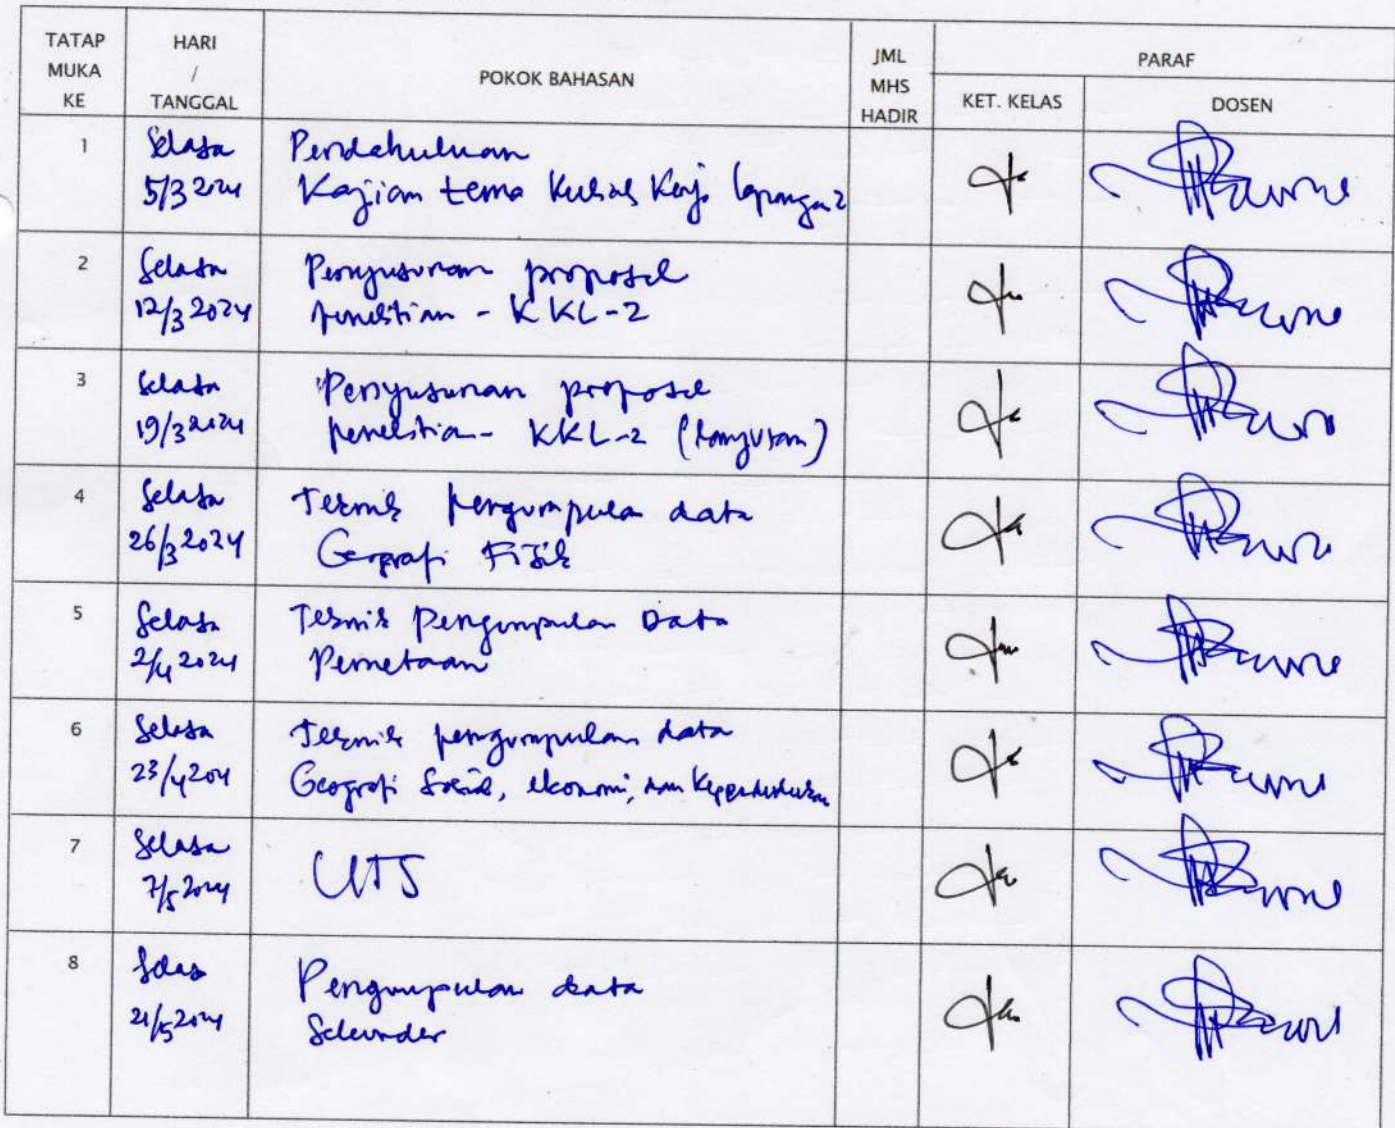 TATAP MUKA KE
HARI / TANGGAL
POKOK BAHASAN
JML MHS HADIR
PARAF
KET. KELAS
DOSEN
1
Selasa
5/3 2024
Pendahuluan
Kajian tema Kuliah Kerja lapangan 2
2
Selasa
12/3 2024
Penyusunan proposal
penelitian - KKL-2
3
Selasa
19/3 2024
Penyusunan proposal
penelitian - KKL-2 (lanjutan)
4
Selasa
26/3 2024
Teknik pengumpulan data
Geografi Fisik
5
Selasa
2/4 2024
Teknik Pengumpulan Data
Pemetaan
6
Selasa
23/4 204
Teknik pengumpulan data
Geografi Sosial, ekonomi, dan Kependudukan
7
Selasa
7/5 2024
UTS
8
Selasa
21/5 2024
Pengumpulan data
Sekunder